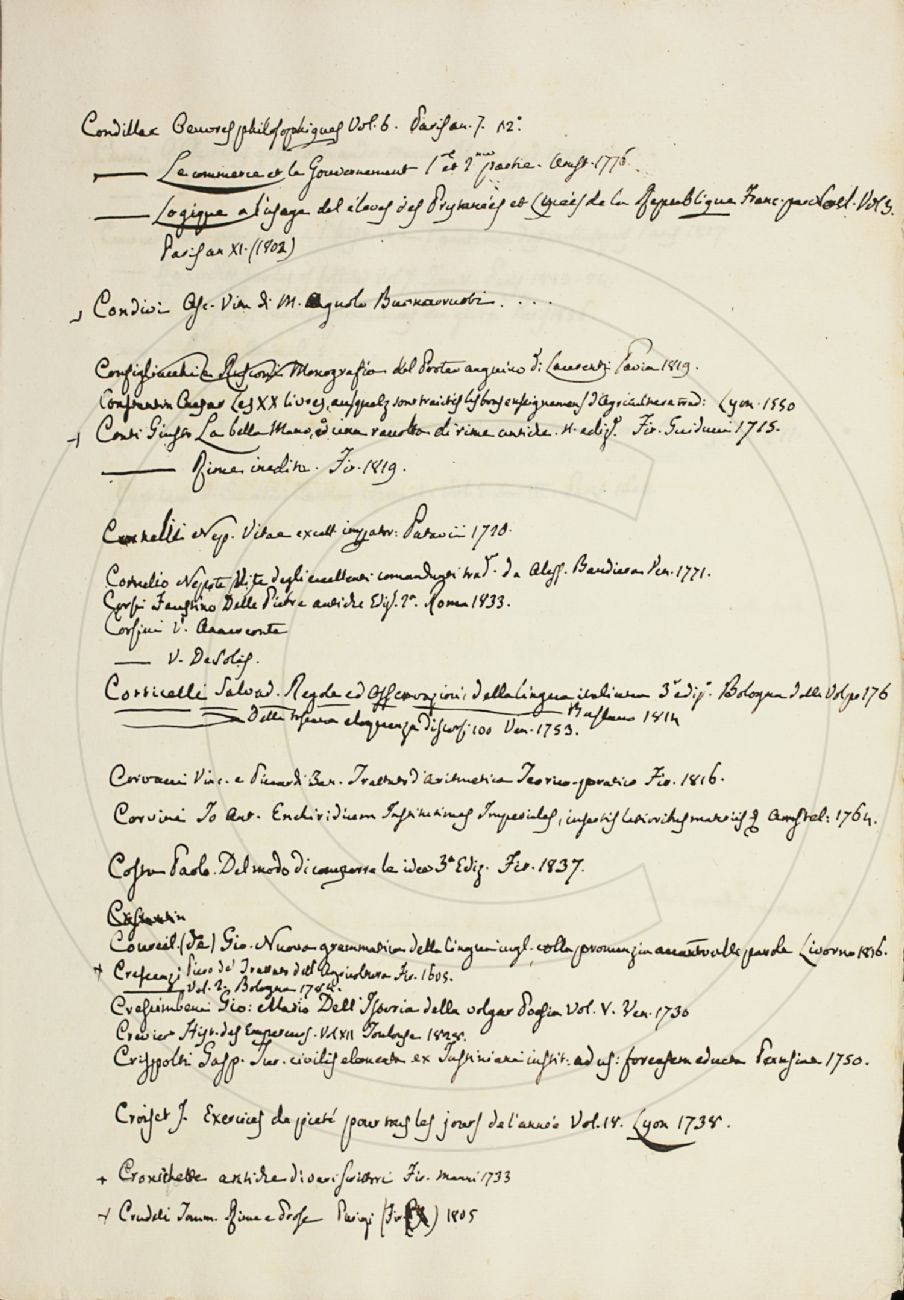 Condillac Oeuvres philosophiques Vol. 6. Paris an. 7. 12°.
—— Le commerce et le Gouvernement 1re et 2me partie. Amst. 1776.
—— Logique a l'usage des éleves des Prytanées et Lycées de la Republique Franc. par Vol 3.
Paris an XI. (1802)
Condivi Asc. Vita di M. Agnolo Buonarruoti . . . .
Configliacchi e Rusconi Monografia del Proteo anguino di Laurenti Pavia 1819.
Constantin Caesar Les XX livres, ausquelz sont traictés les bons enseignemens d'Agriculture trad: Lyon. 1550
Conti Giusto La bella Mano, ed una raccolta di rime antiche. Fir. Guiducci 1715.
—— Rime inedite. Fir. 1819.
Cornelii Nep. Vitae excell. imperator: Patavii 1720.
Cornelio Nepote Vite degli eccellenti comandanti trad. da Aless. Bandiera Ven. 1771.
Corsi Faustino Delle Pietre antiche Ediz. 2a. Roma 1833.
Corsini V. Anacreonte
—— V. De Solis.
Corticelli Salvad. Regole ed Osservazioni della lingua italiana 3a ediz. Bologna della Volpe 176
Bassano 1814
—— Della toscana eloquenza discorsi 100 Ven. 1753.
Corvani Vinc. e Picardi Ben. Trattato d'Aritmetica Teorico-pratico Fir. 1816.
Corvini Jo Ant. Enchiridium Institutiones Imperiales, insertis latioribus materiis & Amstel: 1764.
Costa Paolo. Del modo di comporre le idee 3a Ediz. Fir. 1837.
Coureil (de) Gio. Nuova grammatica della lingua ingl. colla pronunzia accanto alle parole Livorno 1816.
Crescenzi Piero de' Trattato dell'Agricoltura Fir. 1605.
—— Vol. 2. Bologna
Crescimbeni Gio: Mario Dell'Istoria della volgar Poesia Vol. V. Ven. 1730
Crevier Hist. des Empereurs. Vol XII Toulouse 1828.
Crispolti Gasp. Jur. civilis elementa ex Justiniani instit. ad us: forensem educta Perusiae 1750.
Croiset J. Exercices de pieté pour tous les jours de l'année Vol. 18. Lyon 1738.
Cronichette antiche di vari scrittori Fir. Manni 1733
Crudeli Tomm. Rime e Prose Parigi (Fir ) 1805